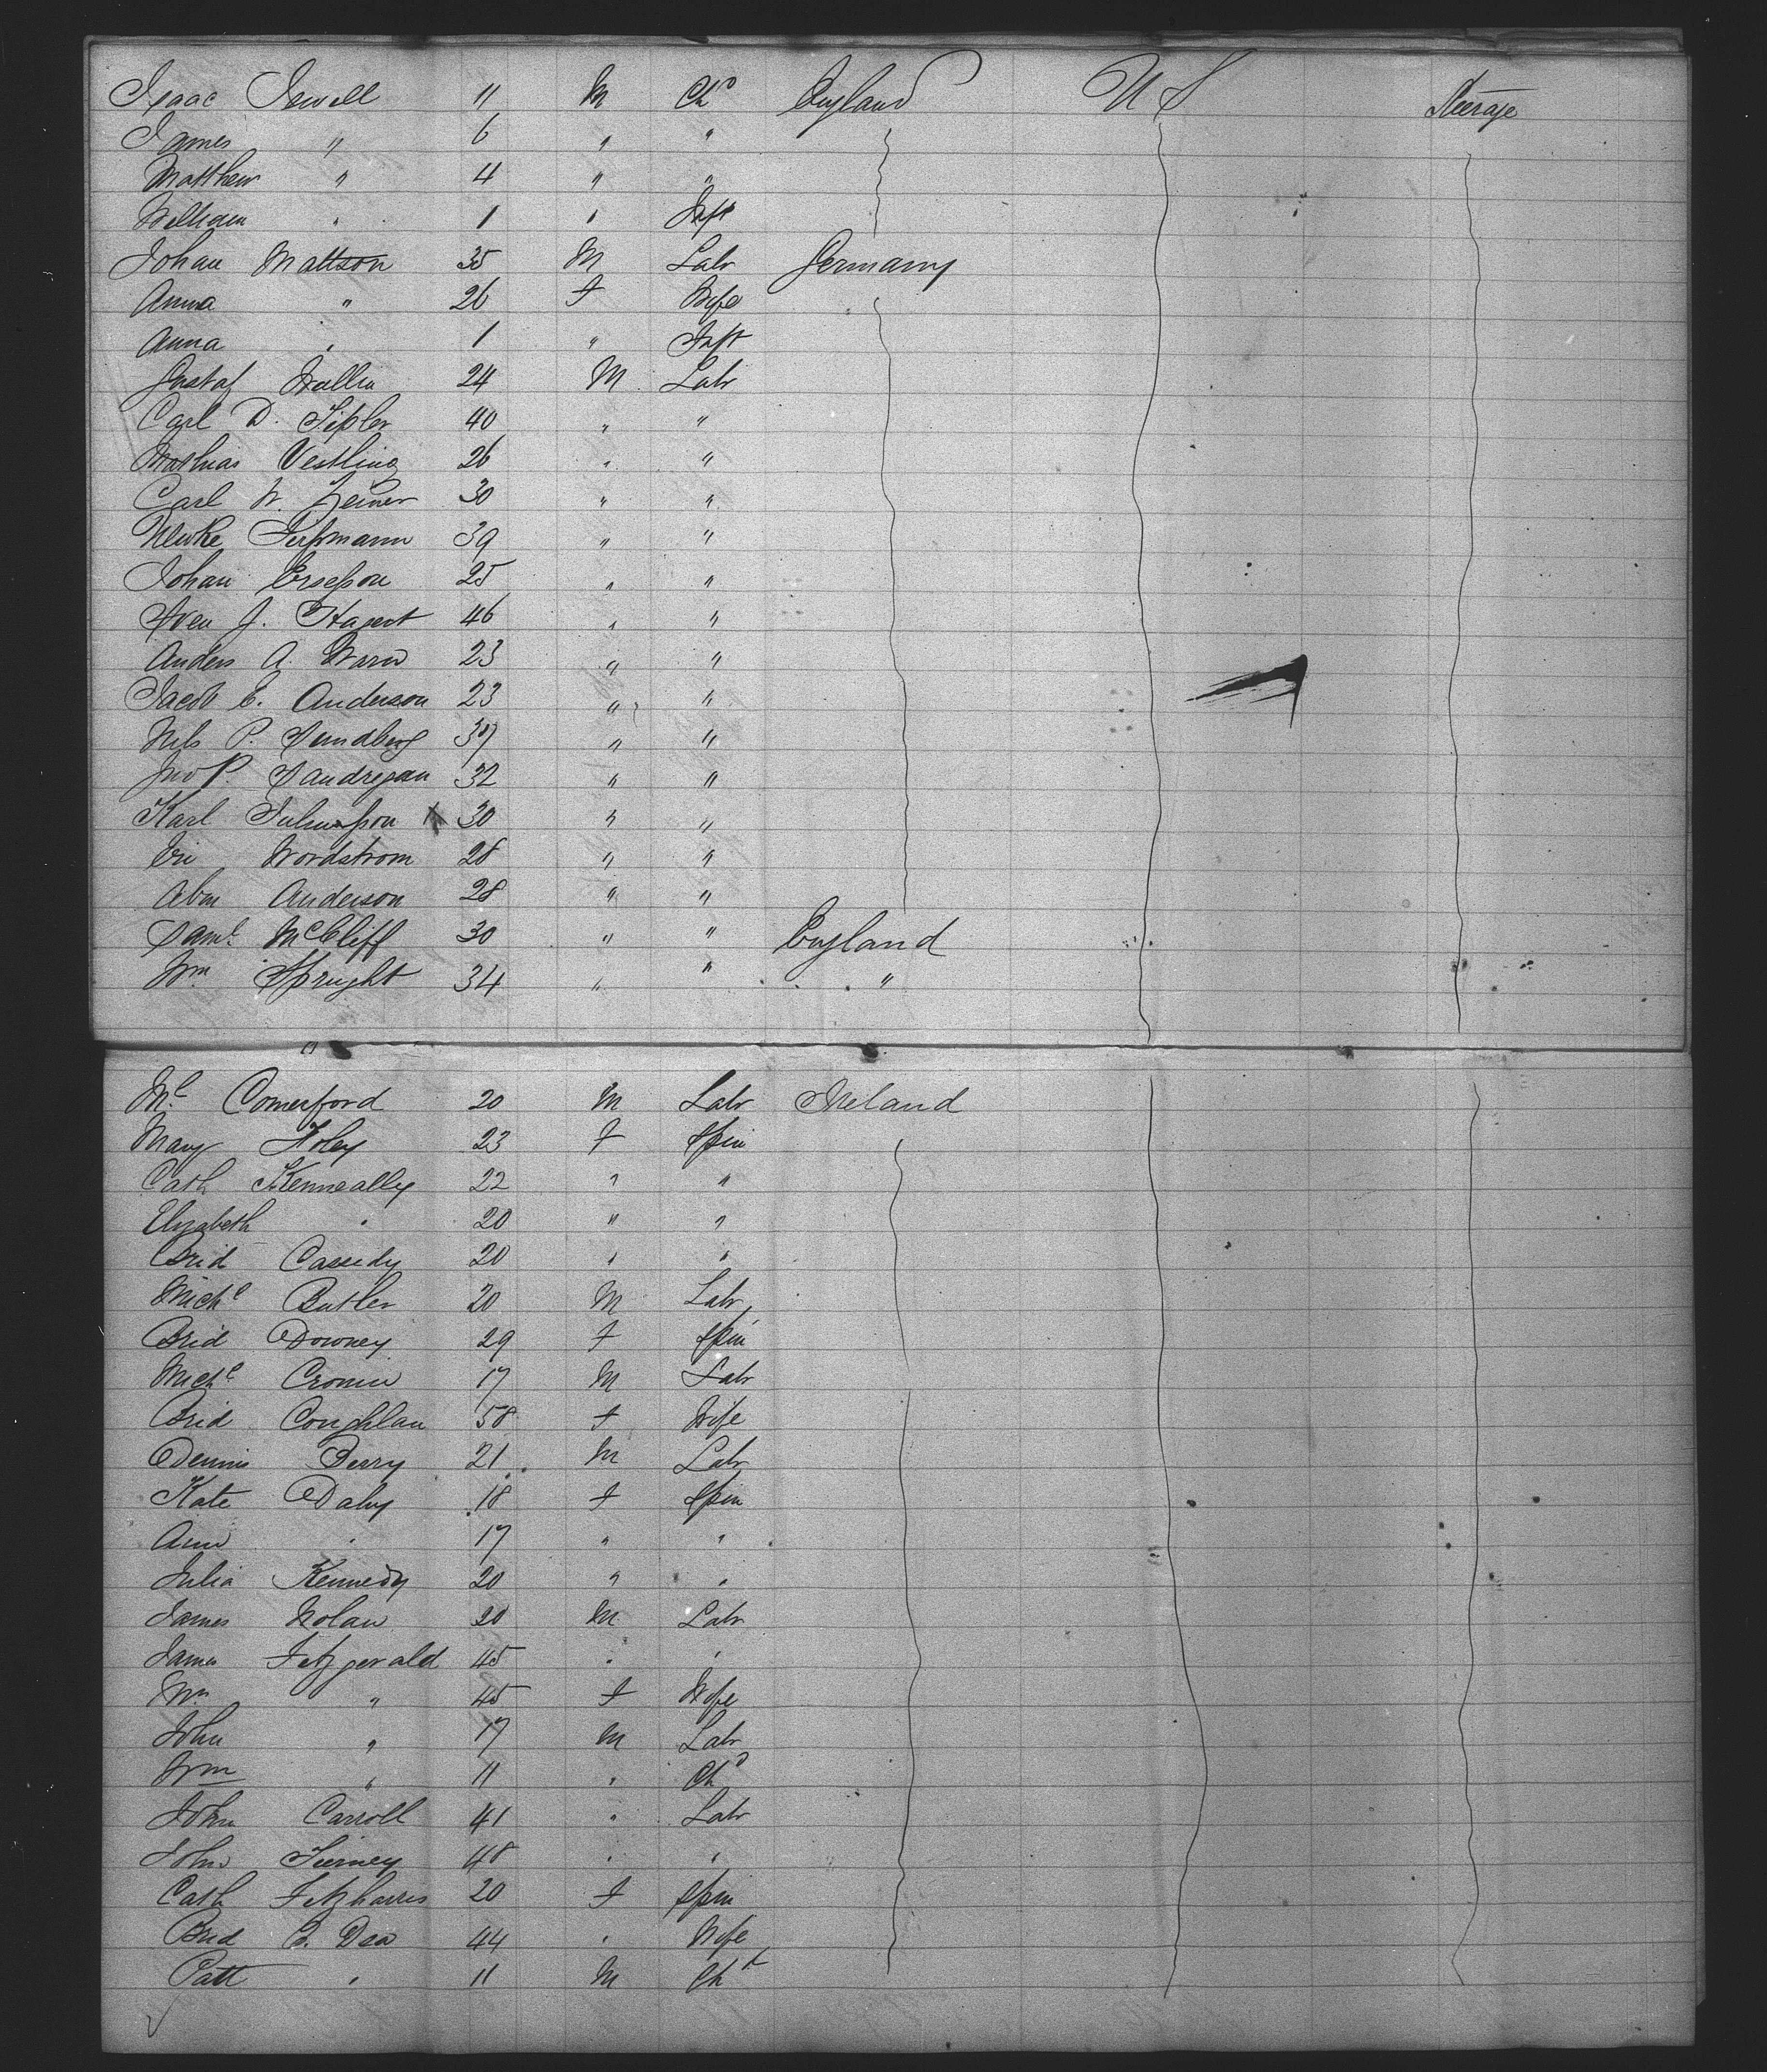 Isaac Sewell 11 M Chd England U S Steerage
James " 6 " "
Matthew " 4 " "
William " 1 " Inft
Johan Mattson 35 M Labr Germany
Anna " 26 F Wife
Anna " 1 " Inft
Gustaf Wallin 24 M Labr
Carl D. Tipler 40 " "
Mathias Vestling 26 " "
Carl W. Zeiner 30 " "
39 " "
Johan 25 " "
Sven J. 46 " "
Anders A. 23 " "
Jacob C. Anderson 23 " "
Nels P. Sundberg 37 " "
Jno P. 32 " "
Karl 30 " "
Nordstrom 28 " "
Abm Anderson 28 " "
Saml McCliff 30 " " England
Wm Spright 34 " " "
Ml Comerford 20 M Labr Ireland
Mary Foley 23 F Spin
Cath Kenneally 22 " "
Elizabeth " 20 " "
Brid Cassidy 20 " "
Michl Butler 20 M Labr
Brid Downey 29 F Spin
Michl Cronin 17 M Labr
Brid Coughlan 58 F Wife
Dennis Berry 21 M Labr
Kate Daly 18 F Spin
Ann " 17 " "
Julia Kennedy 20 " "
James Nolan 20 M Labr
James Fitzgerald 45 " "
Mrs " 45 F Wife
John " 17 M Labr
Wm " 11 " Chd
John Carroll 41 " Labr
John Tierney 48 " "
Cath Fitzharris 20 F Spin
Brid O. Dea 44 " Wife
Patt " 11 M Chd